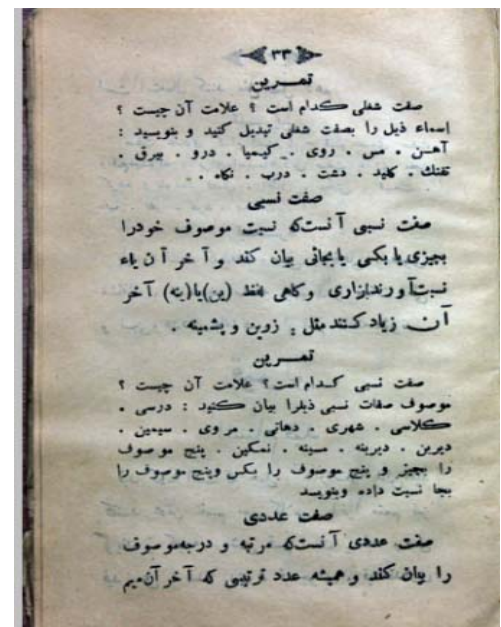 ۳۳
تمرین
صفت شغلی کدام است ؟ علامت آن چیست ؟
اسماء ذیل را بصفت شغلی تبدیل کنید و بنویسید :
آهن . مس . روی . کیمیا . درو . بیرق .
تفنك . کلید . دشت . درب . نگاه .
صفت نسبی
صفت نسبی آنستکه نسبت موصوف خودرا
بچیزی یا بکسی یا بجائی بیان کند و آخر آن یاء
نسبت آورند بازاری و گاهی لفظ (ین) یا (ینه) آخر
آن زیاد کنند مثل : زرین و پشمینه .
تمرین
صفت نسبی کدام است ؟ علامت آن چیست ؟
موصوف صفات نسبی ذیلرا بیان کنید : درسی .
کلاسی . شهری . دهاتی . مروی . سیمین .
دیرین . دیرینه . سینه . نمکین . پنج موصوف
را بچیز و پنج موصوف را بکس وپنج موصوف را
بجا نسبت داده وبنویسد
صفت عددی
صفت عددی آنستکه مرتبه و درجه موصوف
را بیان کند و همیشه عدد ترتیبی که آخر آن میم